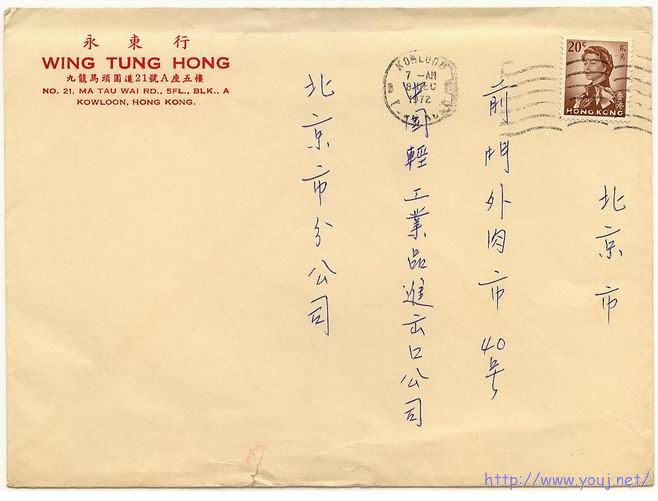 永東行
WING TUNG HONG
九龍馬頭圍道21號A座五樓
NO. 21, MA TAU WAI RD., 5FL., BLK., A
KOWLOON, HONG KONG.
KOWLOON
7 -AM
8 DEC
1972
20¢
貳角
香港
HONG KONG
北京市
前門外肉市40号
中国輕工業品進出口公司
北京市分公司
http://www.youj.net/